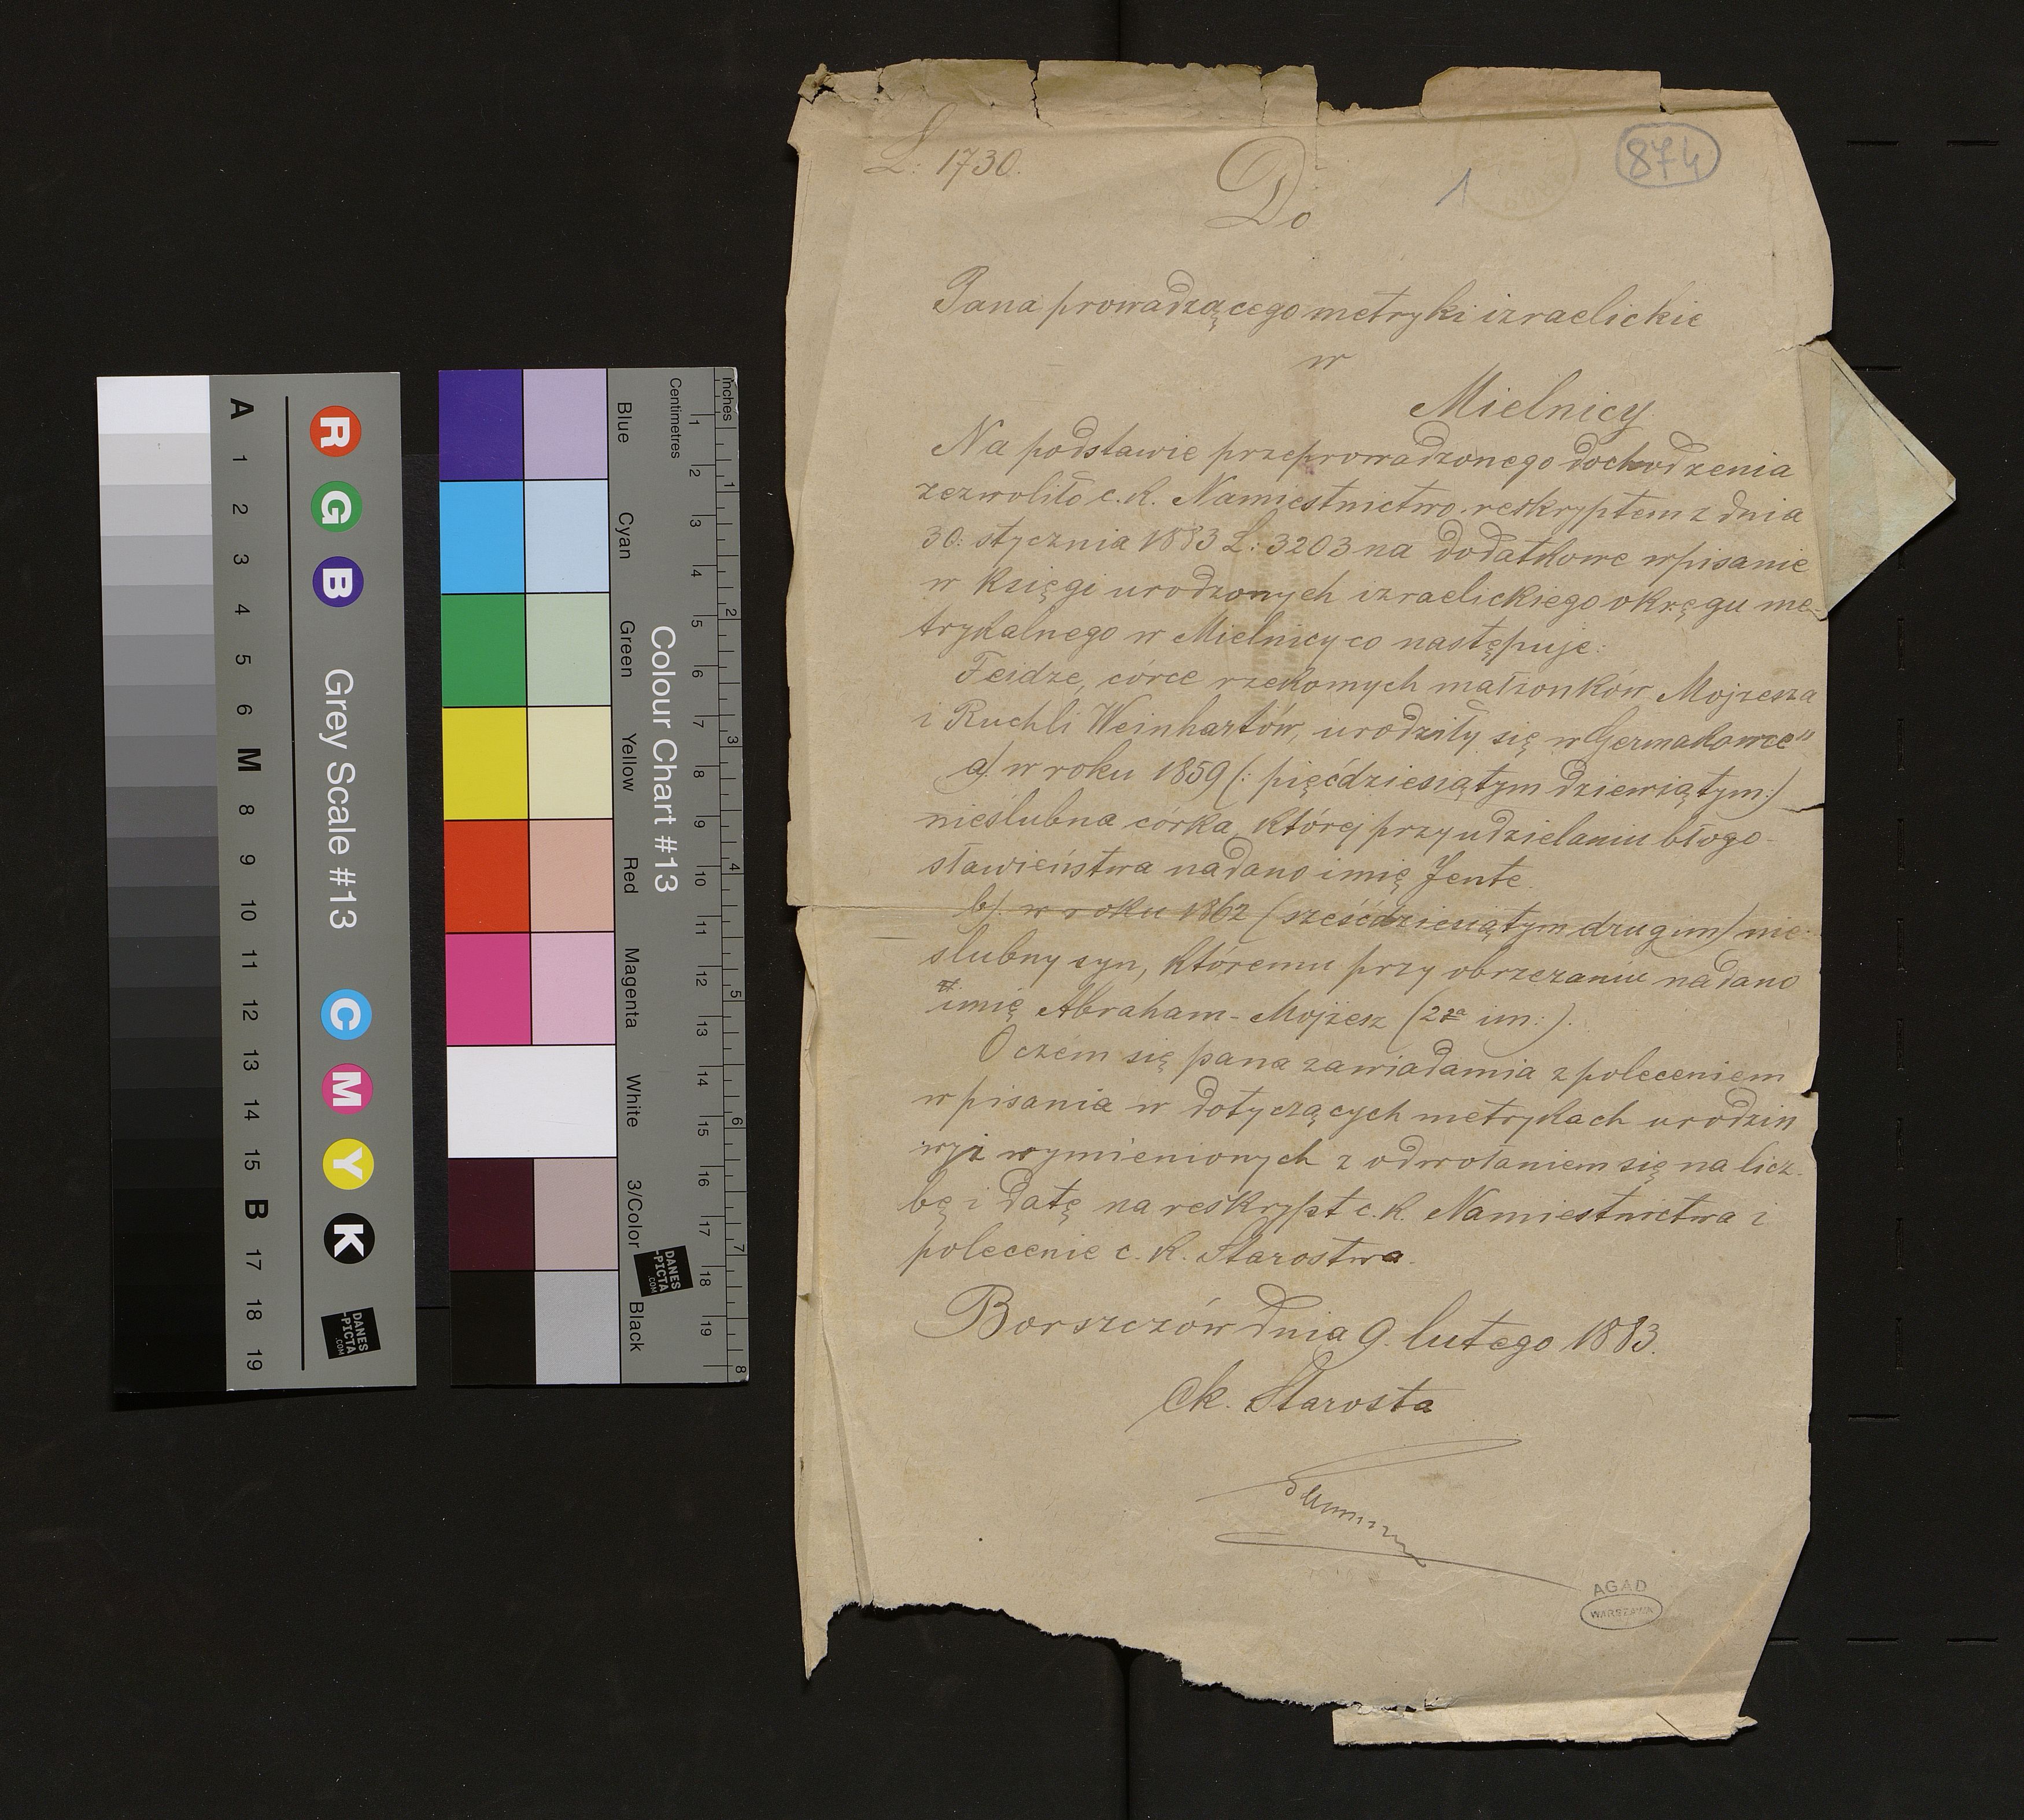 L: 1730.
Do
1
874
Pana prowadzącego metryki izraelickie
w
Mielnicy
Na podstawie przeprowadzonego dochodzenia
zezwoliło c. k. Namiestnictwo reskryptem z dnia
30. stycznia 1883 L: 3203 na dodatkowe wpisanie
w księgi urodzonych izraelickiego okręgu me-
trykalnego w Mielnicy co następuje:
Feidze, córce rzekomych małżonków Mojżesza
i Ruchli Weinhartów, urodziły się w Germakowce"
a) w roku 1859 (: pięćdziesiątym dziewiątym:)
nieślubna córka, której przy udzielaniu błogo-
sławieństwa nadano imię Jente.
b). w roku 1862 (sześćdziesiątym drugim) nie-
ślubny syn, któremu przy obrzezaniu nadano
imię Abraham-Mojżesz (2ga im:).
O czem się pana zawiadamia z poleceniem
wpisania w dotyczących metrykach urodzin
wyż wymienionych z odwołaniem się na licz-
bę i datę na reskrypt c. k. Namiestnictwa i
polecenie c. k. Starostwa.
Borszczów dnia 9. lutego 1883.
Ck. Starosta
AGAD
WARSZAWA
Grey Scale #13
R G B C M Y K
A 1 2 3 4 5 6 M 8 9 10 11 12 13 14 15 B 17 18 19
DANES
-PICTA
.COM
Colour Chart #13
Blue Cyan Green Yellow Red Magenta White 3/Color Black
Centimetres 1 2 3 4 5 6 7 8 9 10 11 12 13 14 15 16 17 18 19
Inches 1 2 3 4 5 6 7 8
DANES
-PICTA
.COM